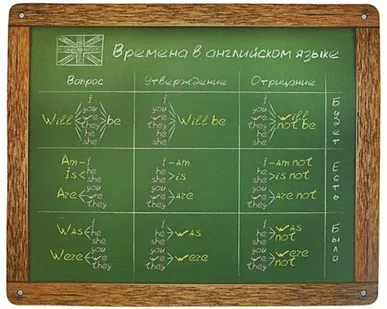 Времена в английском языке
Вопрос Утверждение Отрицание
i i i
you you you
we we we will
Will they be they Will be they not be
he he he
she she she
Будет
Am i i am i am not
is he he is he is not
she she she
you you you
Are we we are we are not
they they they
Есть
i i i was
Was he he was he not
she she she
you you you were
Were we we were we not
they they they
Было